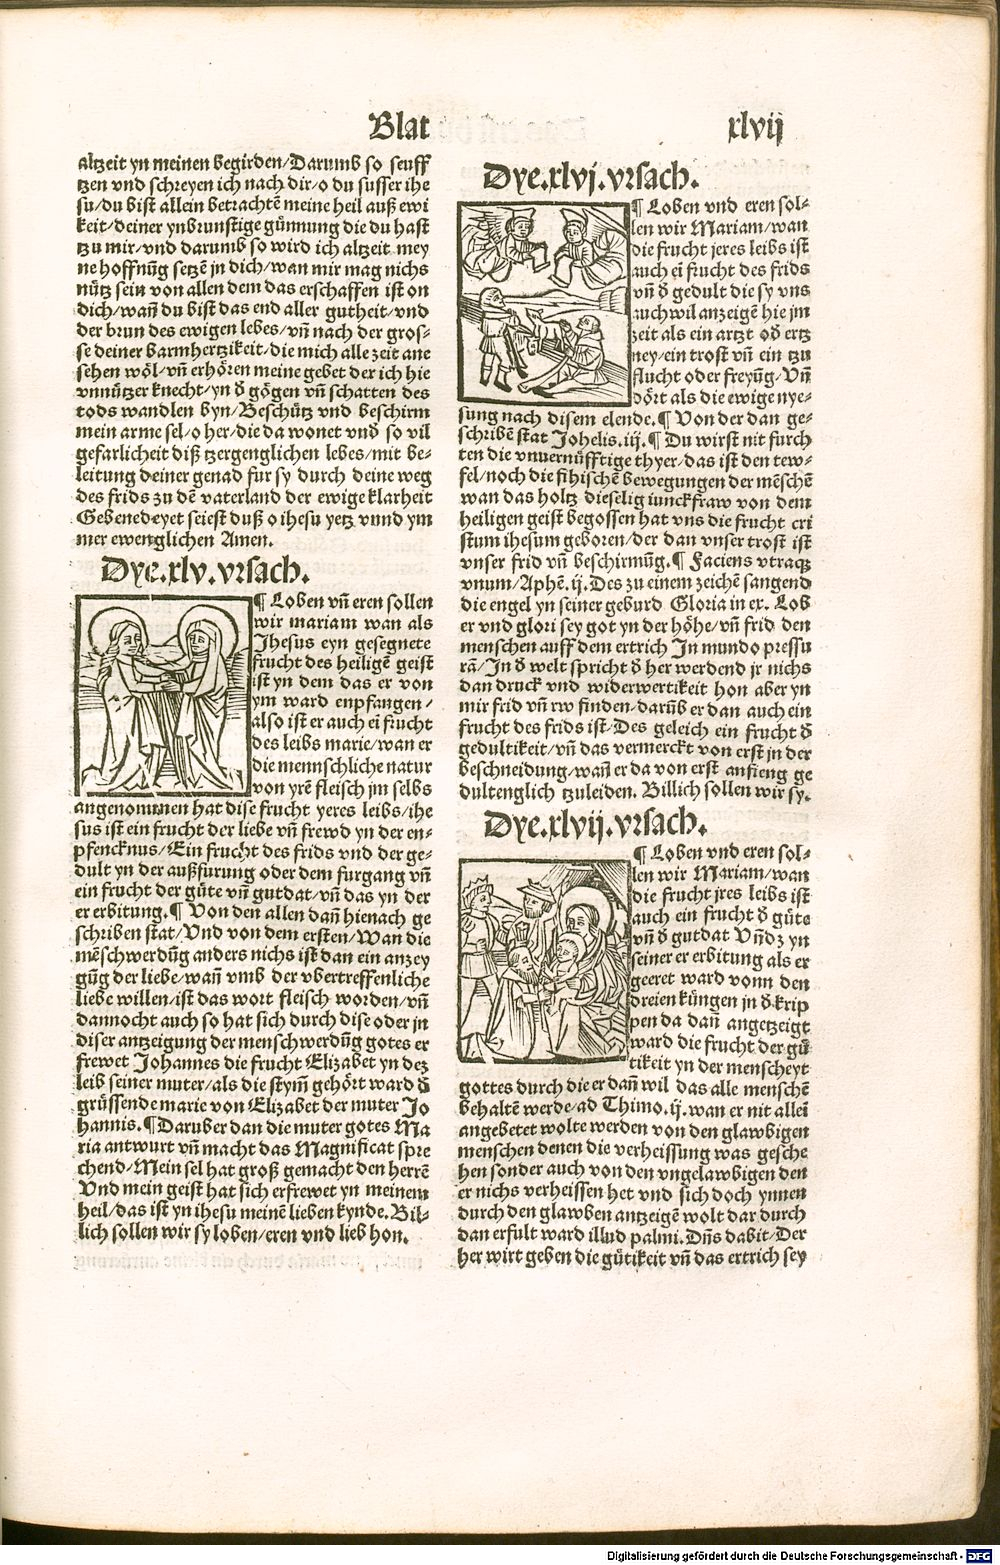 Blat
xlvij
altzeit yn meinen begirden/Darumb so seuff
tzen vnd schreyen ich nach dir/o du susser ihe
su/du bist allein betrachtē meine heil auß ewi
keit/deiner ynbrunstige günnung die du hast
tzu mir/vnd darumb so wird ich altzeit mey
ne hoffnūg setzē jn dich/wan mir mag nichs
nütz sein von allen dem das erschaffen ist on
dich/wañ du bist das end aller gutheit/vnd
der brun des ewigen lebes/vñ nach der gros⸗
se deiner barmhertzikeit/die mich alle zeit ane
sehen wöl/vñ erhören meine gebet der ich hie
vnnützer knecht/yn d̄ gögen vñ schatten des
tods wandlen byn/Beschütz vnd beschirm
mein arme sel/o her/die da wonet vnd̄ so vil
gefarlicheit diß tzergenglichen lebes/mit be⸗
leitung deiner genad fur sy durch deine weg
des frids zu dē vaterland der ewige klarheit
Gebenedeyet seiest duß o ihesu yetz vnnd ym
mer ewenglichen Amen.
Dye.xlv.vrsach.
¶ Loben vñ eren sollen
wir mariam wan als
Jhesus eyn gesegnete
frucht des heiligē geist
ist yn dem das er von
ym ward enpfangen/
also ist er auch ei frucht
des leibs marie/wan er
die mennschliche natur
von yrē fleisch jm selbs
angenommen hat dise frucht yeres leibs/ihe
sus ist ein frucht der liebe vñ frewd yn der en⸗
pfencknus/Ein frucht des frids vnd der ge⸗
dult yn der außfurung oder dem furgang vñ
ein frucht der güte vñ gutdat/vñ das yn der
er erbitung.¶ Von den allen dañ hienach ge
schriben stat/Vnd von dem ersten/Wan die
mēschwerdūg anders nichs ist dan ein anzey
gūg der liebe/wañ vmb der vbertreffenliche
liebe willen/ist das wort fleisch worden/vñ
dannocht auch so hat sich durch dise oder jn
diser antzeigung der menschwerdūg gotes er
frewet Johannes die frucht Elizabet yn dez
leib seiner muter/als die stym̄ gehört ward d̄
grüssende marie von Elizabet der muter Jo
hannis.¶ Daruber dan die muter gotes Ma
ria antwurt vñ macht das Magnificat spre
chend/Mein sel hat groß gemacht den herrē
Vnd mein geist hat sich erfrewet yn meinem
heil/das ist yn ihesu meinē lieben kynde. Bil⸗
lich sollen wir sy loben/eren vnd lieb hon.
Dye.xlvj.vrsach.
¶ Loben vnd eren sol⸗
len wir Mariam/wan
die frucht jeres leibs ist
auch ei frucht des frids
vñ d̄ gedult die sy vns
auch wil anzeigē hie jm
zeit als ein artzt od̄ ertz
ney/ein trost vñ ein tzu
flucht oder freyūg/Vñ
dört als die ewige nye⸗
sung nach disem elende.¶ Von der dan ge⸗
schribē stat Johelis.iij.¶ Du wirst nit furch
ten die vnuernüfftige thyer/das ist den tew⸗
fel/noch die fihischē bewegungen der mēschē
wan das holtz dieselig iunckfraw von dem
heiligen geist begossen hat vns die frucht cri
stum ihesum geboren/der dan vnser trost ist
vnser frid vñ beschirmūg.¶ Faciens vtraqꝫ
vnum/Aphē.ij. Des zu einem zeichē sangend
die engel yn seiner geburd Gloria in ex. Lob
er vnd glori sey got yn der höhe/vñ frid den
menschen auff dem ertrich Jn mundo pressu
rā/Jn d̄ welt spricht d̄ her werdend jr nichs
dan druck vnd widerwertikeit hon aber yn
mir frid vñ rw finden/darūb er dan auch ein
frucht des frids ist/Des geleich ein frucht d̄
gedultikeit/vñ das vermerckt von erst jn der
beschneidung/wañ er da von erst anfieng ge
dultenglich tzuleiden. Billich sollen wir sy.
Dye.xlvij.vrsach.
¶ Loben vnd eren sol⸗
len wir Mariam/wan
die frucht jres leibs ist
auch ein frucht d̄ güte
vñ d̄ gutdat Vñdz yn
seiner er erbitung als er
geeret ward vonn den
dreien küngen jn d̄ krip
pen da dañ angetzeigt
ward die frucht der gü
tikeit yn der menscheyt
gottes durch die er dañ wil das alle menschē
behaltē werde/ad Thimo.ij. wan er nit allei
angebetet wolte werden von den glawbigen
menschen denen die verheissung was gesche
hen sonder auch von den vngelawbigen den
er nichs verheissen het vnd sich doch ynnen
durch den glawben antzeigē wolt dar durch
dan erfult ward illud palmi. Dn̄s dabit/Der
her wirt geben die gütikeit vñ das ertrich sey
Digitalisierung gefördert durch die Deutsche Forschungsgemeinschaft - DFG